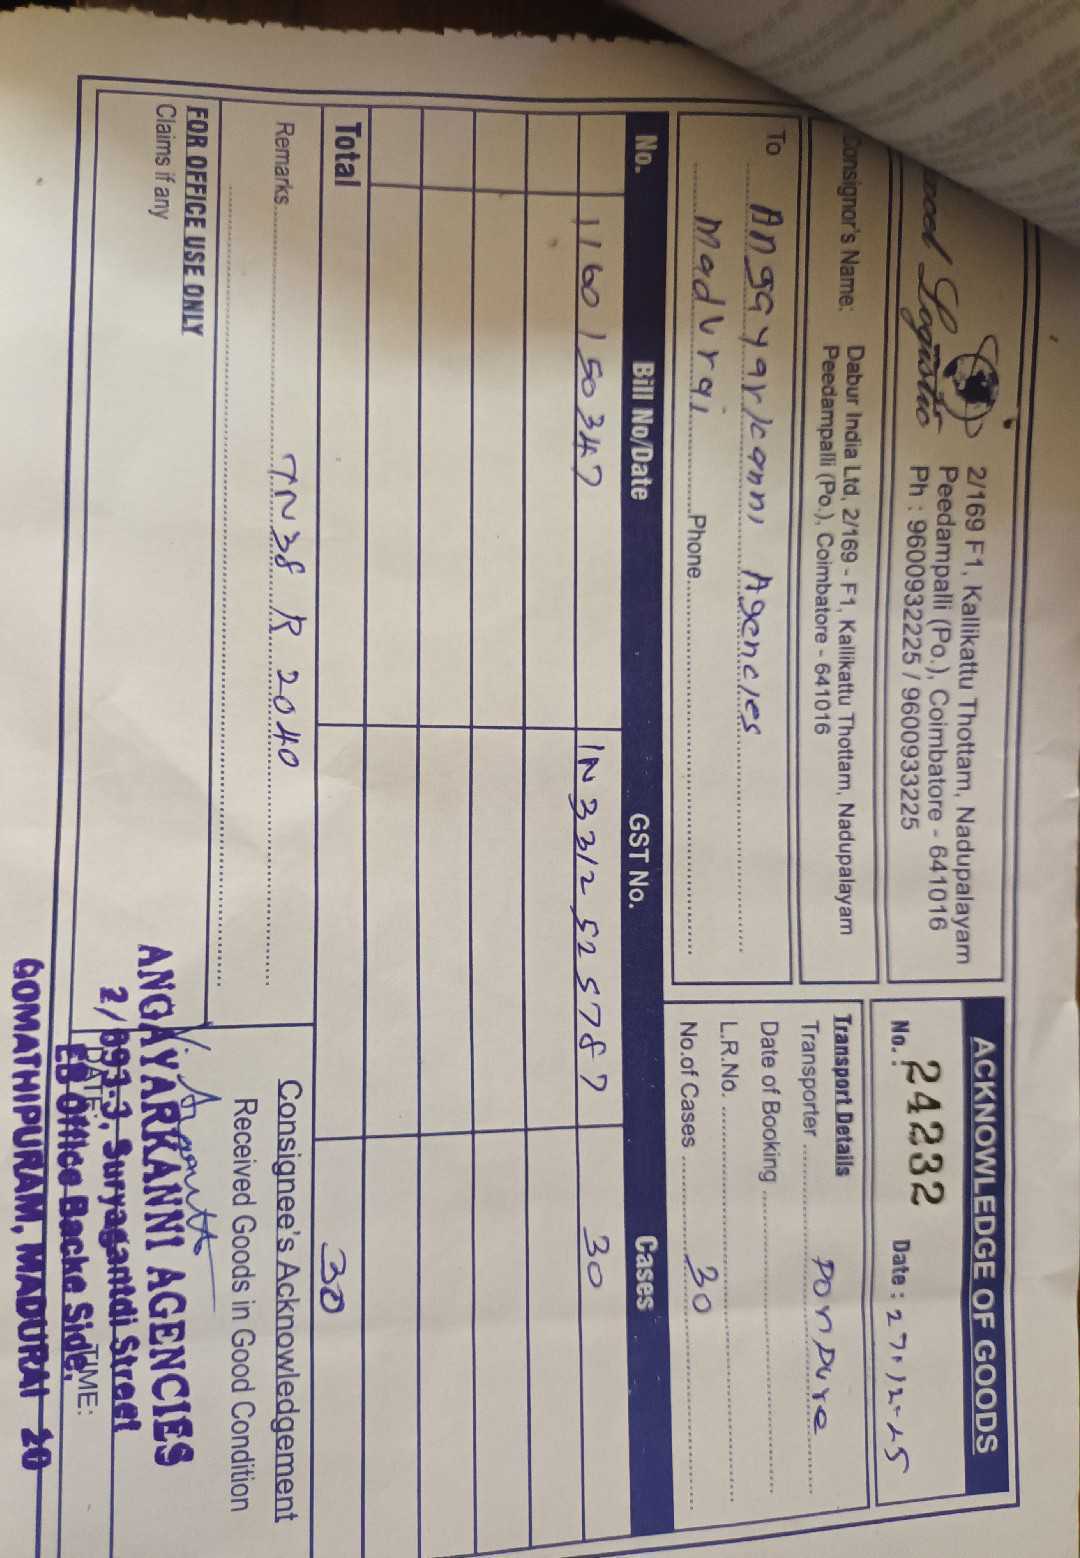 Logistic
2/169 F1, Kallikattu Thottam, Nadupalayam
Peedampalli (Po.), Coimbatore - 641016
Ph : 9600932225 / 9600933225
ACKNOWLEDGE OF GOODS
No. : 24232 Date : 27.12-25
Consignor's Name: Dabur India Ltd, 2/169 - F1, Kallikattu Thottam, Nadupalayam
Peedampalli (Po.), Coimbatore - 641016
To Angayarkanni Agencies
Madurai Phone
Transport Details
Transporter Ponpure
Date of Booking
L.R.No.
No.of Cases 30
No. Bill No/Date GST No. Cases
1160150347 IN3312525787 30
Total 30
Remarks TN38 R 2040
Consignee's Acknowledgement
Received Goods in Good Condition
FOR OFFICE USE ONLY
Claims if any
DATE: TIME:
ANGAYARKANNI AGENCIES
2/693-3, Suryagantdi Street
EB Office Backe Side,
GOMATHIPURAM, MADURAI 20